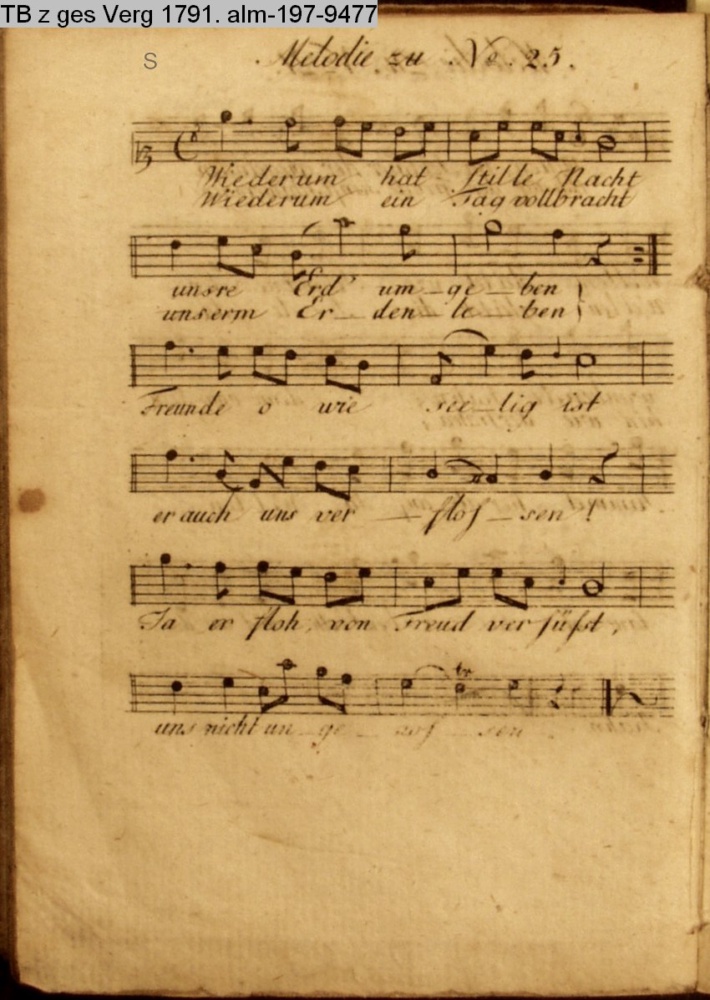 TB z ges Verg 1791. alm-197-9477
S
Melodie zu No. 25.
Wiederum hat stille Nacht
Wiederum ein Tag vollbracht
unsre Erd' um_ge_ben
unserm Er_den_le_ben;
Freunde o wie see_lig ist
er auch uns ver_flos_sen!
Ja er floh, von Freud versüßt,
uns nicht un_ge_nos_sen